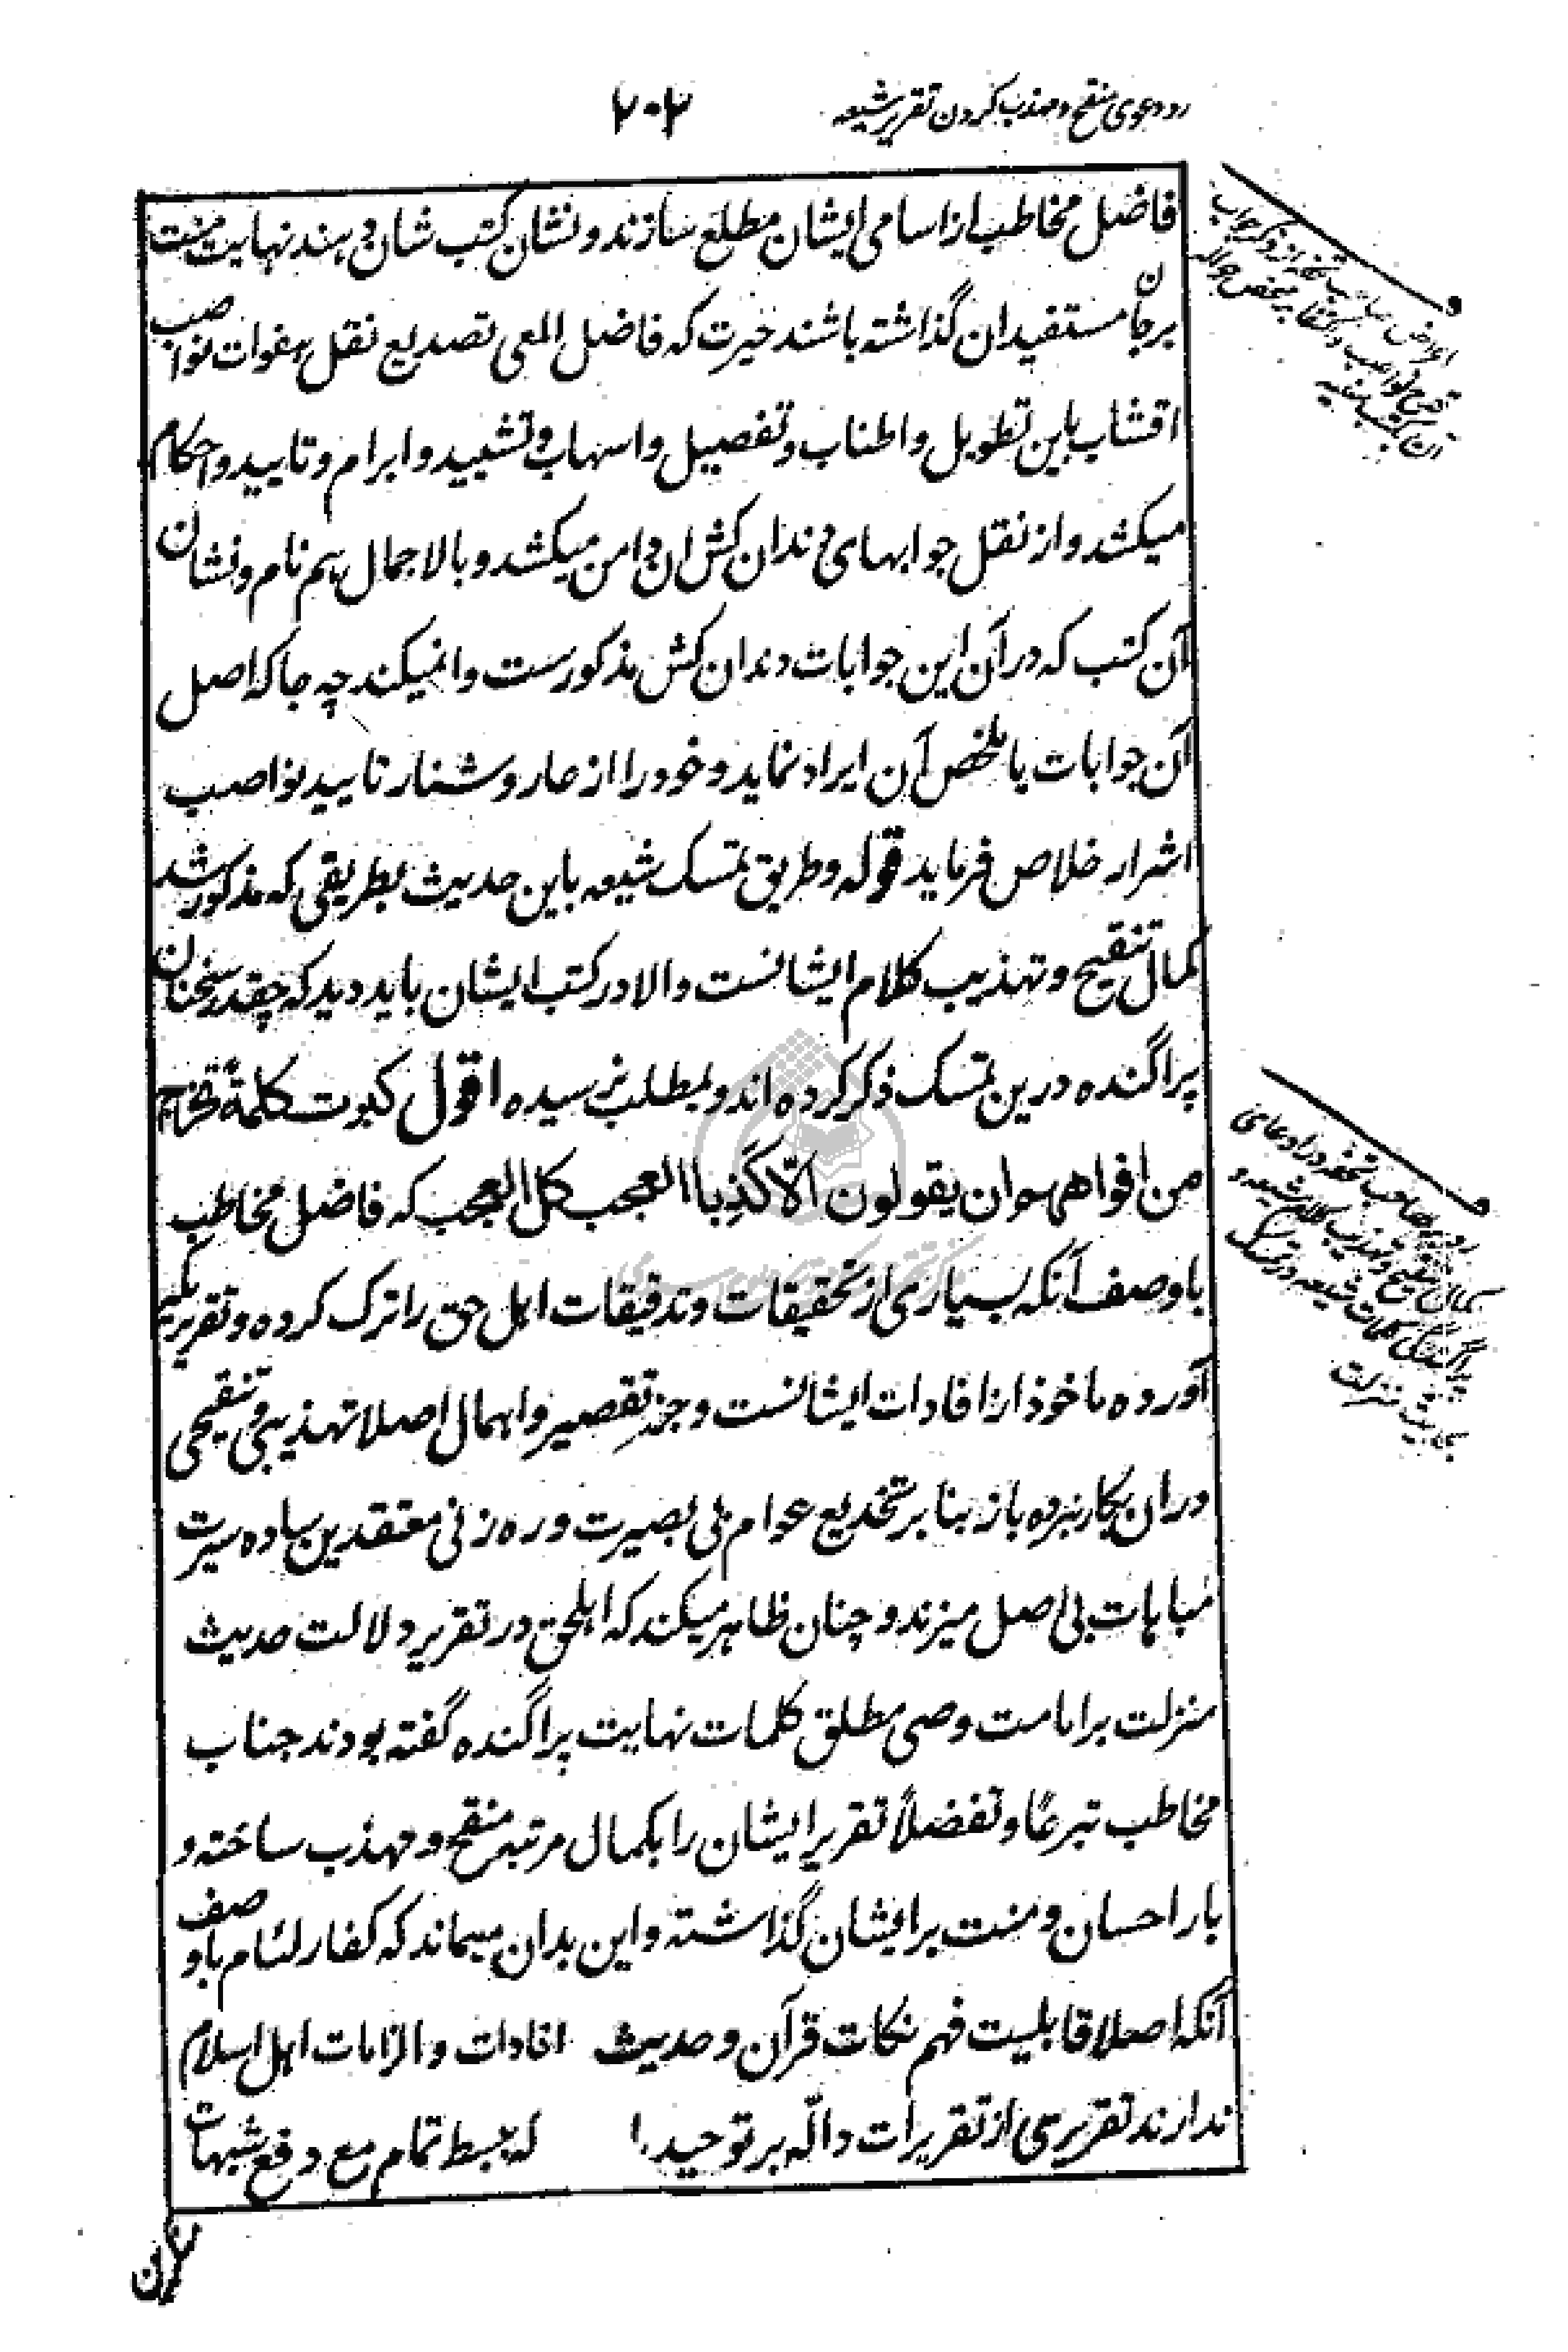 رد دعوی منقح و مهذب کردن تقریر شیعه
۷۰۲
فاضل مخاطب از اسامی ایشان مطلع سازند و نشان کتب شان دهند نهایت منت
بر جان مستفیدان گذاشته باشند حیرت که فاضل المعی تصدیع نقل هفوات نواصب
اقشاب باین تطویل و اطناب و تفصیل و اسهاب و تشیید و ابرام و تایید و احکام
میکشد و از نقل جوابهای دندان کش ان دامن میکشد و بالاجمال هم نام و نشان
آن کتب که در آن این جوابات دندان کش مذکورست وانمیکند چه جا که اصل
آن جوابات یا ملخص آن ایراد نماید و خود را از عار و شنار تایید نواصب
اشرار خلاص فرماید قوله و طریق تمسک شیعه باین حدیث بطریقی که مذکور شد
کمال تنقیح و تهذیب کلام ایشانست والا در کتب ایشان باید دید که چقدر سخنان
پراگنده درین تمسک ذکر کرده اند و بمطلب نرسیده اقول کبرت کلمة تخرج
من افواههم وان یقولون الّا کَذِبا العجب کل العجب که فاضل مخاطب
باوصف آنکه بسیاری از تحقیقات و تدقیقات اهل حق را ترک کرده و تقریریکه
آورده ماخوذ از افادات ایشانست و جز تقصیر و اهمال اصلا تهذیبی و تنقیحی
دران بکار نبرده باز بنا بر تخدیع عوام بی بصیرت و ره زنی معتقدین ساده سیرت
مباهات بی اصل میزند و چنان ظاهر میکند که اهلحق در تقریر دلالت حدیث
منزلت بر امامت وصی مطلق کلمات نهایت پراگنده گفته بودند جناب
مخاطب تبرعًا و تفضلاً تقریر ایشان را بکمال مرتبه منقح و مهذب ساخته و
بار احسان و منت بر ایشان گذاشته و این بدان میماند که کفار لئام باوصف
آنکه اصلا قابلیت فهم نکات قرآن و حدیث افادات و الزامات اهل اسلام
ندارند تقریری از تقریرات دالّه بر توحید ا که ببسط تمام مع دفع شبهات
رد صاحب تحفه در ادعای
کمال تنقیح و تهذیب کلام شیعه و
پراگندگی کلمات شیعه در تمسک
بحدیث منزلت